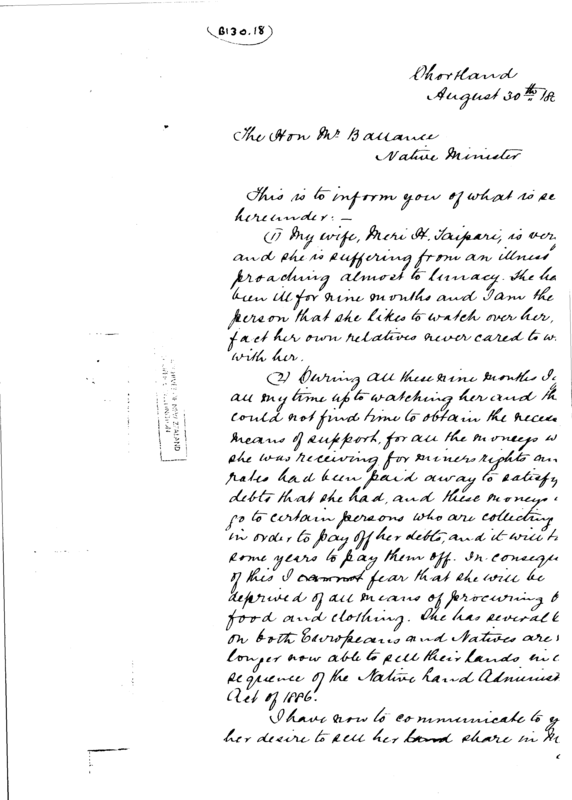 B130.18
Shortland
August 30th 18
The Hon Mr. Ballance
Native Minister
This is to inform you of what is se
hereunder: —
(1) My wife, Meri H. Taipari, is ver
and she is suffering from an illness
proaching almost to lunacy. She ha
been ill for nine months and I am the
person that she likes to watch over her,
fact her own relatives never cared to w
with her.
(2) During all these nine months I g
all my time up to watching her and th
could not find time to obtain the necess
means of support, for all the moneys w
she was receiving for miners rights an
rates had been paid away to satisfy
debts that she had, and these moneys
go to certain persons who are collecting
in order to pay off her debts, and it will t
some years to pay them off. In consequ
of this I cannot fear that she will be
deprived of all means of procuring b
food and clothing. She has several b
on both Europeans and Natives are
longer now able to sell their lands in c
sequence of the Native Land Administ
Act of 1886.
I have now to communicate to y
her desire to sell her land share in M